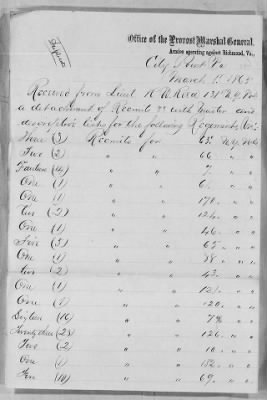 Office of the Provost Marshal General,
Armies operating against Richmond, Va.,
City Point Va
March 1st 1865
Received from Lieut 131st N.Y. Vols
a detachment of Recruits with muster and
descriptive lists for the following Regiments, viz:
Three (3) Recruits for 65 N.Y. Vols
Two (2) " " 66 "
(14) " " 7 "
One (1) " " 6 "
One (1) " " 170 "
Two (2) " " 124 "
One (1) " " 46 "
Five (5) " " 65 "
One (1) " " 88 "
Two (2) " " 43 "
One (1) " " 121 "
One (1) " " 120 "
Sixteen (16) " "
(23) " " 126 "
Two (2) " " 10 "
One (1) " " 182 "
(10) " " 69 "